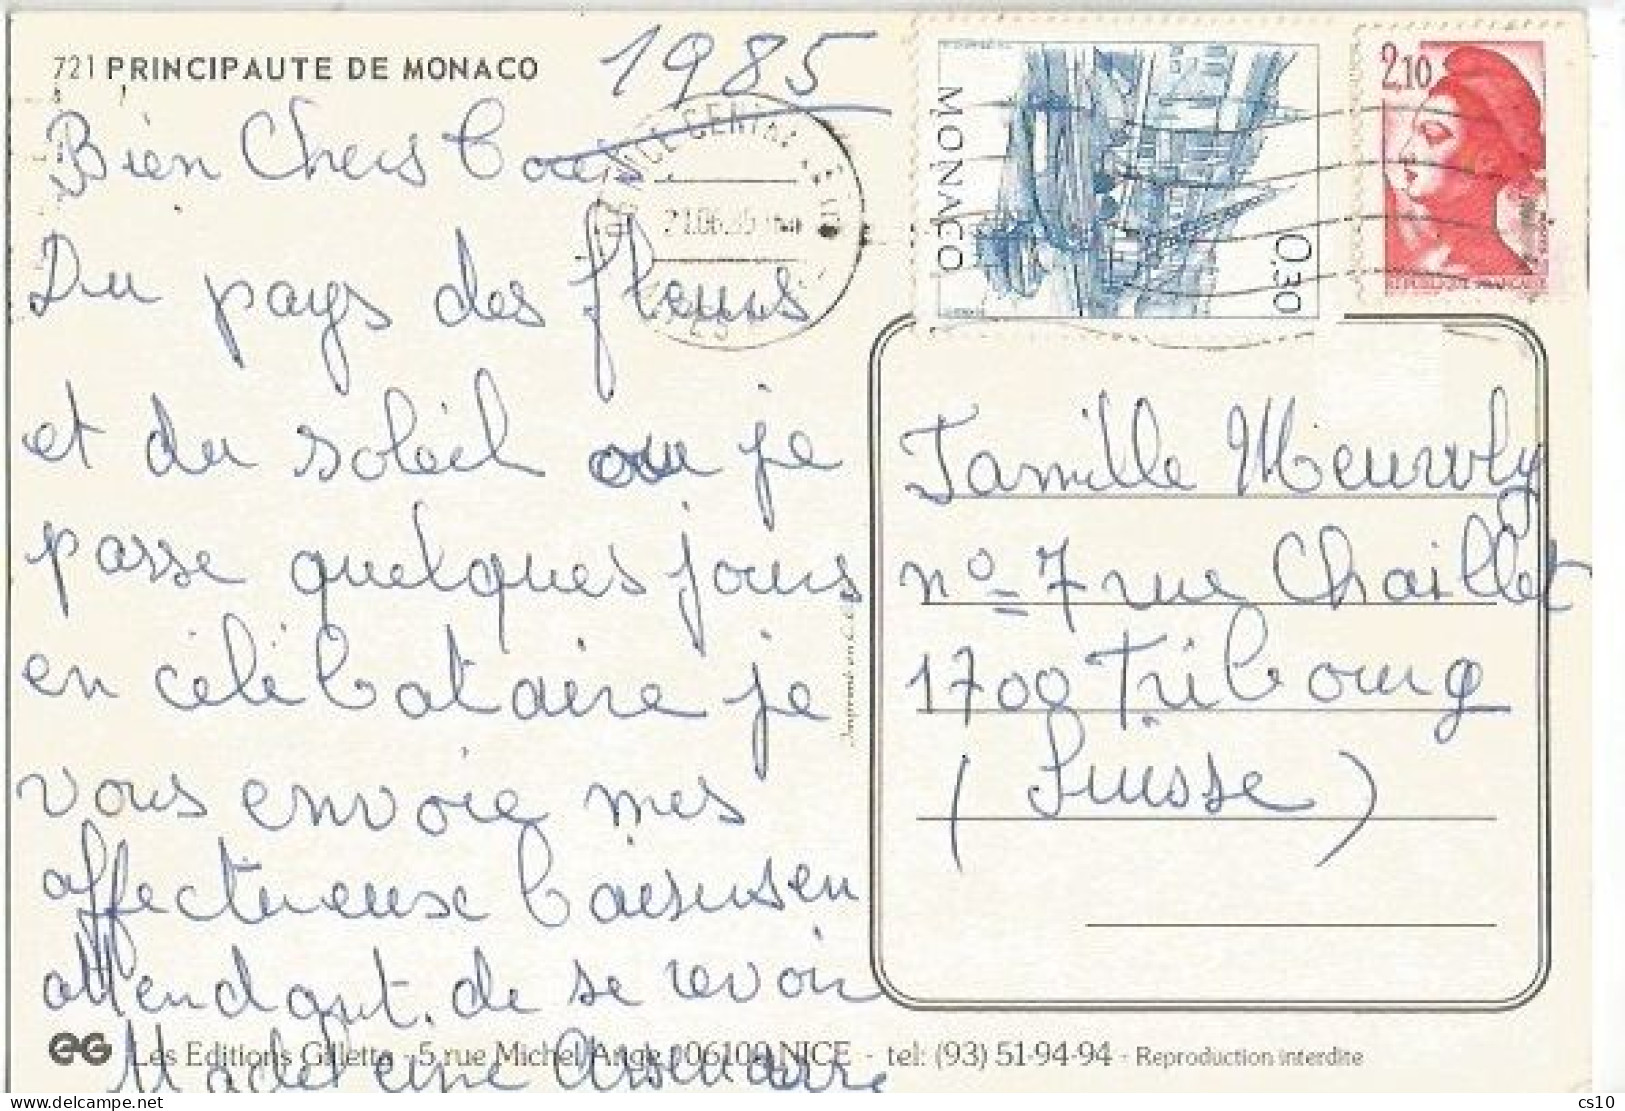 721 PRINCIPAUTE DE MONACO
1985
Bien Chers
Du pays des fleurs
et du soleil ou je
passe quelques jours
en célébataire je
vous envoie mes
affectueuse baisers en
attendant de se revoir
Madeleine
MONACO
0,30
2,10
REPUBLIQUE FRANÇAISE
NICE CENTRALE
21.06.85
Famille Meuwly
n° 7 rue Chaillet
1700 Fribourg
(Suisse)
EG Les Editions Giletta - 5, rue Michel Ange - 06100 NICE - tel: (93) 51-94-94 - Reproduction interdite
cs10